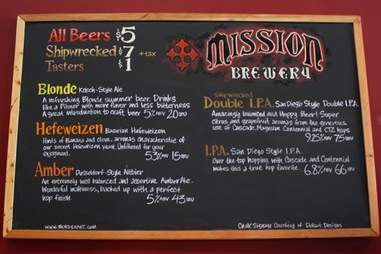 All Beers $5
Shipwrecked $7 + tax
Tasters $1
MISSION
BREWERY
Blonde Kölsch-Style Ale
A refreshing Blonde summer beer. Drinks
like a Pilsner with more flavor and less bitterness
A great introduction to craft beer 5% 20 IBU
Hefeweizen Bavarian Hefeweizen
Hints of Banana and clove, aromas characteristic of
our secret Hefeweizen yeast. Unfiltered for your
enjoyment. 5.3% 15 IBU
Amber Dusseldorf-Style Altbier
An extremely well balanced and assertive Amber Ale.
Wonderful maltiness, backed up with a perfect
hop finish. 5% 43 IBU
Shipwrecked
Double I.P.A. San Diego Style Double I.P.A.
Amazingly balanced and Hoppy Beer! Super
citrus and grapefruit aromas from the generous
use of Cascade, Magnum, Centennial and CTZ hops
9.25% 75 IBU
I.P.A. San Diego Style I.P.A.
Over the top hopping with Cascade and Centennial
makes this a true hop favorite 6.8% 66 IBU
Chalk Signage Courtesy of Designs